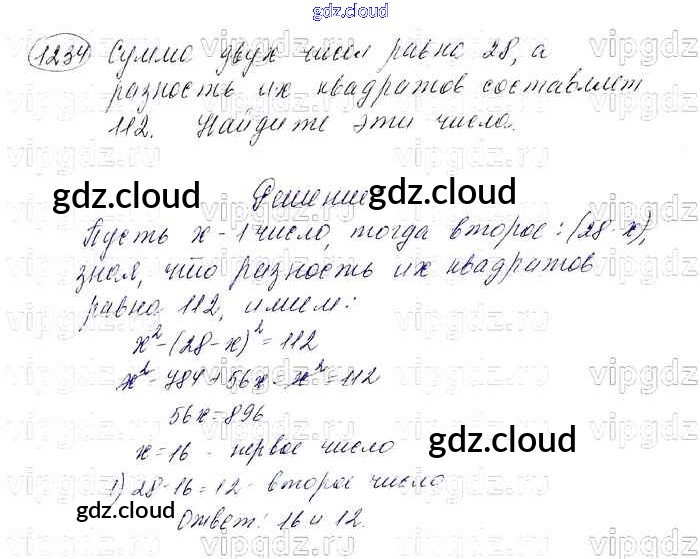 gdz.cloud
1234 Сумма двух чисел равна 28, а
разность их квадратов составляет
112. Найдите эти числа.
gdz.cloud
Решение
gdz.cloud
Пусть x - 1 число, тогда второе: (28-x),
зная, что разность их квадратов
равна 112, имеем:
x² - (28 - x)² = 112
x² - 784 + 56x - x² = 112
56x = 896
gdz.cloud
x = 16 - первое число
1) 28 - 16 = 12 - второе число
gdz.cloud
Ответ: 16 и 12.
vipgdz